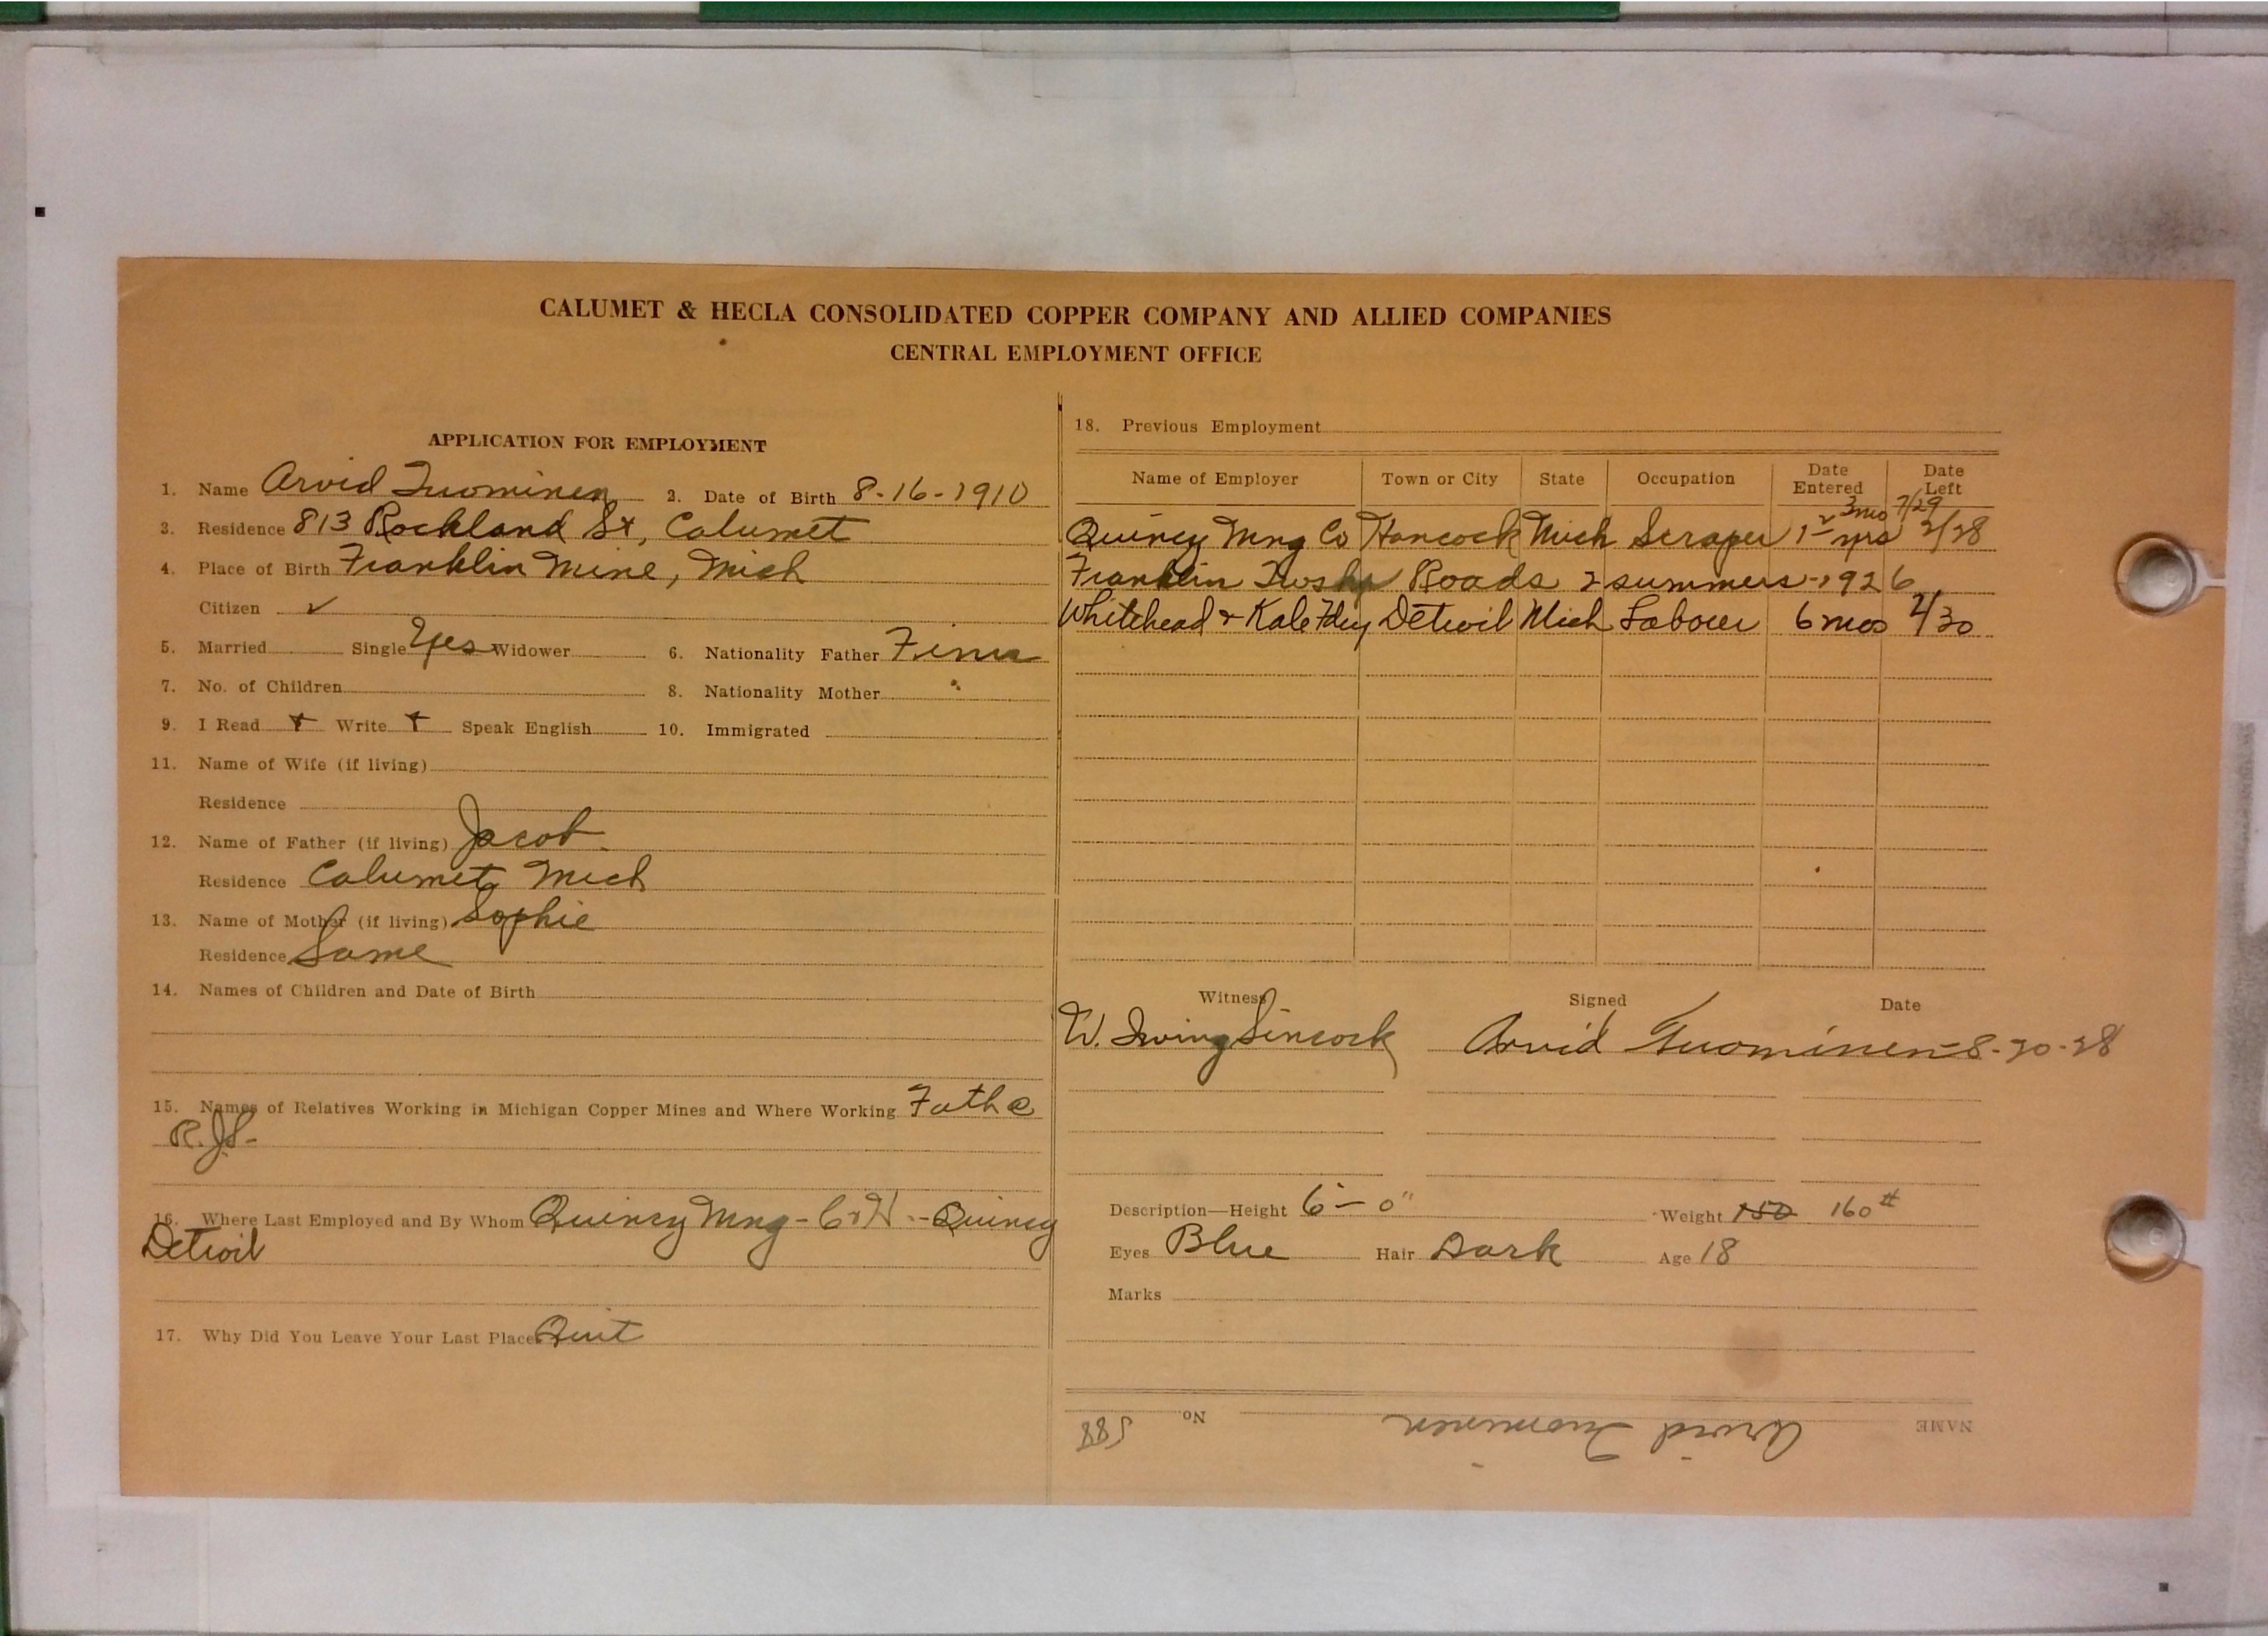 CALUMET & HECLA CONSOLIDATED COPPER COMPANY AND ALLIED COMPANIES
CENTRAL EMPLOYMENT OFFICE
APPLICATION FOR EMPLOYMENT
1. Name Arvid Tuominen 2. Date of Birth 8-16-1910
3. Residence 813 Rockland St, Calumet
4. Place of Birth Franklin Mine, Mich
Citizen ✓
5. Married Single Yes Widower 6. Nationality Father Finn
7. No. of Children 8. Nationality Mother "
9. I Read + Write + Speak English 10. Immigrated
11. Name of Wife (if living)
Residence
12. Name of Father (if living) Jacob
Residence Calumet, Mich
13. Name of Mother (if living) Sophie
Residence Same
14. Names of Children and Date of Birth
15. Names of Relatives Working in Michigan Copper Mines and Where Working Father
16. Where Last Employed and By Whom Quincy Mng - C & H - Quincy
Detroit
17. Why Did You Leave Your Last Place Quit
18. Previous Employment
Name of Employer Town or City State Occupation Date Entered Date Left
3mo 7/29
Quincy Mng Co Hancock Mich Scraper 1 yrs 2/28
Franklin Twshp Roads 2 summers - 1926
Whitehead & Kales Detroit Mich Labour 6 mos 4/30
Witness Signed Date
W. Irving Sincock Arvid Tuominen 8-20-28
Description—Height 6'-0" Weight 150 160#
Eyes Blue Hair Dark Age 18
Marks
NAME Arvid Tuominen No. 588